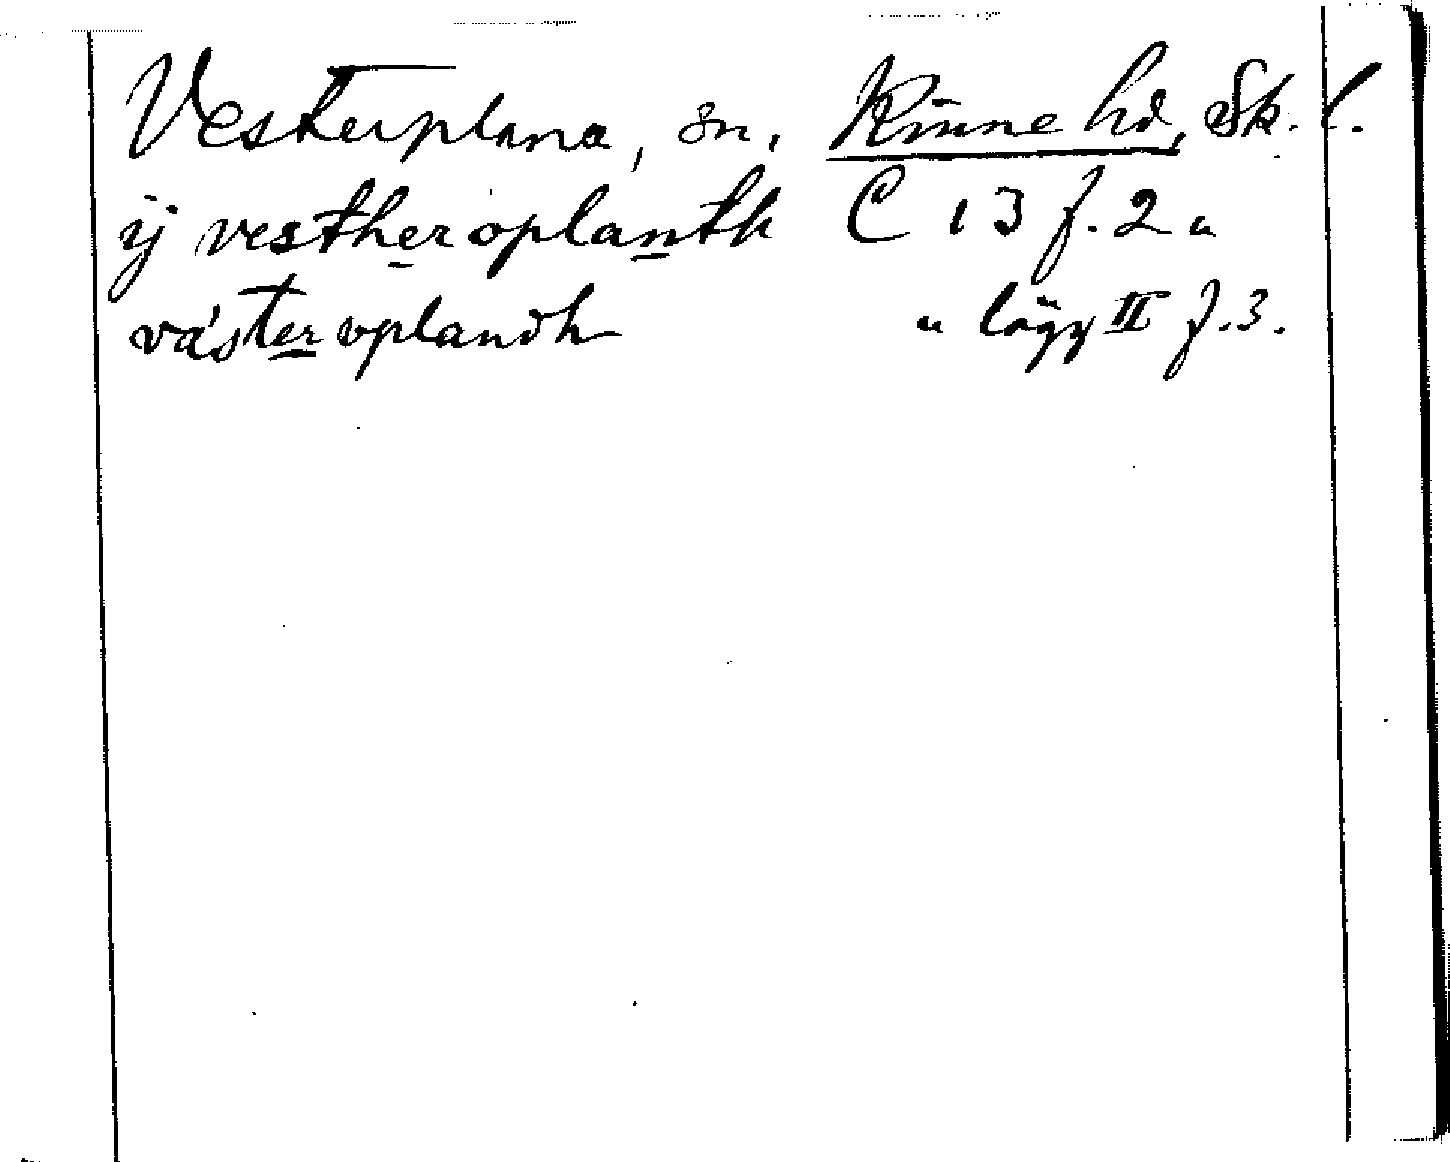 Vesterplana, sn, Kinne hd, Sk. l.
ij vestheroplanth C 13 f. 2 a
väster oplandh " lägg II f. 3.